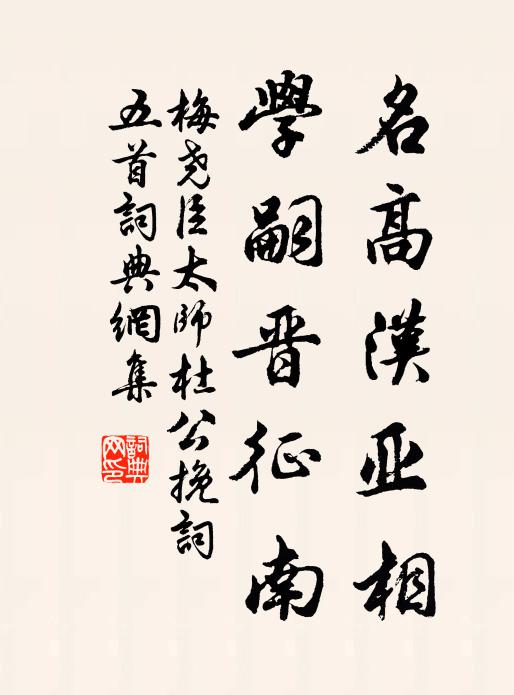 名高漢亚相
學嗣晋征南
梅尧臣太師杜公挽詞
五首詞典網集
詞典網印